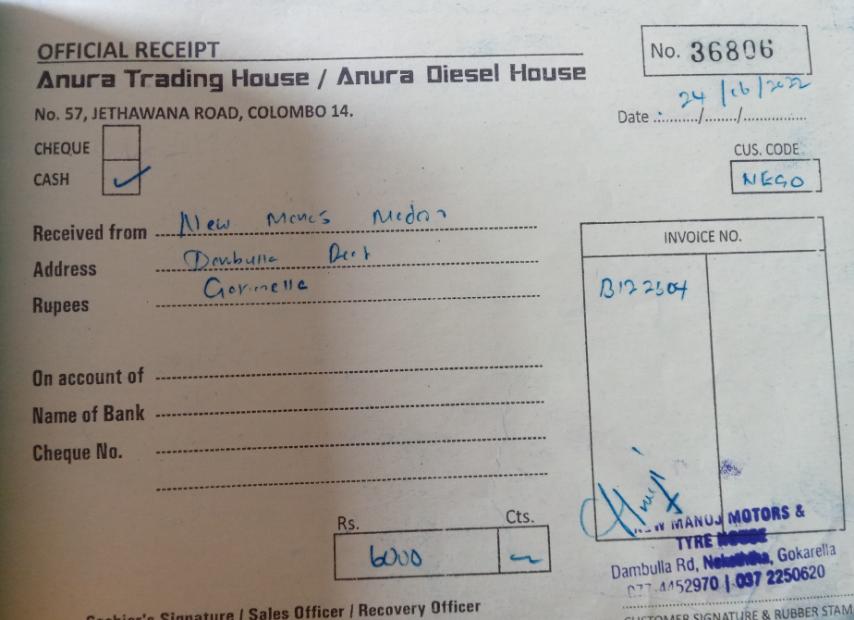 OFFICIAL RECEIPT
Anura Trading House / Anura Diesel House
No. 57, JETHAWANA ROAD, COLOMBO 14.
No. 36806
Date 24/06/2022
CHEQUE
CASH ✓
CUS. CODE
NEGO
Received from New
Address Dambulla
Rupees
INVOICE NO.
B122504
On account of
Name of Bank
Cheque No.
Rs. Cts.
6000
NEW MANOJ MOTORS &
TYRE HOUSE
Dambulla Rd, Gokarella
077 4452970 | 037 2250620
Cashier's Signature / Sales Officer / Recovery Officer
CUSTOMER SIGNATURE & RUBBER STAM